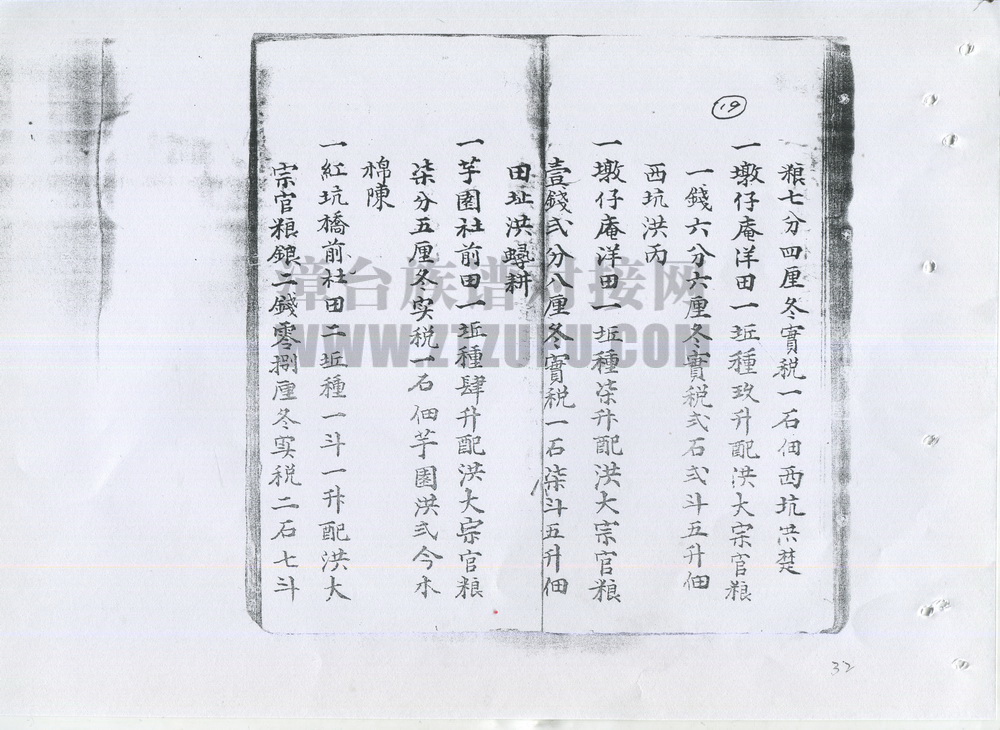 19
粮七分四厘冬實税一石佃西坑洪楚
一墩仔庵洋田一坵種玖升配洪大宗官粮
一錢六分六厘冬實税弍石弍斗五升佃
西坑洪丙
一墩仔庵洋田一坵種柒升配洪大宗官粮
壹錢弍分八厘冬實税一石柒斗五升佃
田址洪蟳耕
一芋園社前田一坵種肆升配洪大宗官粮
柒分五厘冬实税一石佃芋園洪弍今水
棉陳
一紅坑橋前社田二坵種一斗一升配洪大
宗官粮銀二錢零捌厘冬实税二石七斗
漳台族谱对接网
WWW.ZTZUPU.COM
32